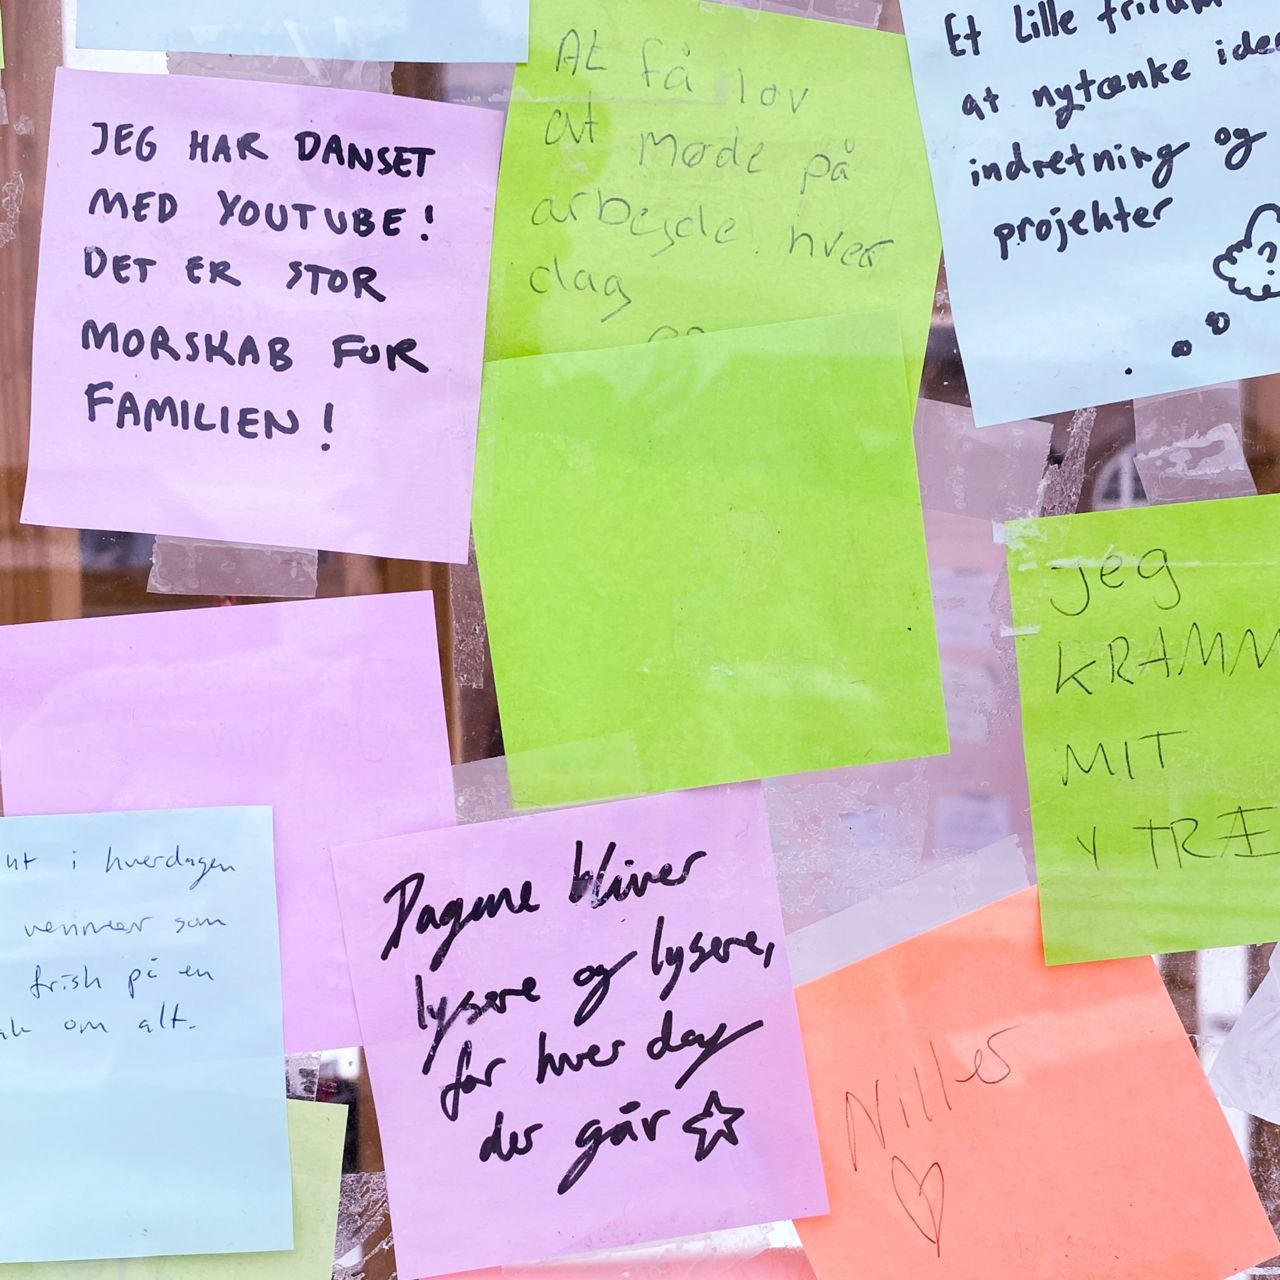 JEG HAR DANSET
MED YOUTUBE!
DET ER STOR
MORSKAB FOR
FAMILIEN!
At få lov
at møde på
arbejde hver
dag
Et lille frirum
at nytænke
indretning og
projekter
?
jeg
KRAMM
MIT
Y TRÆ
i hverdagen
venner som
frisk på en
om alt.
Dagene bliver
lysere og lysere,
for hver dag
der går ☆
Niller
♡